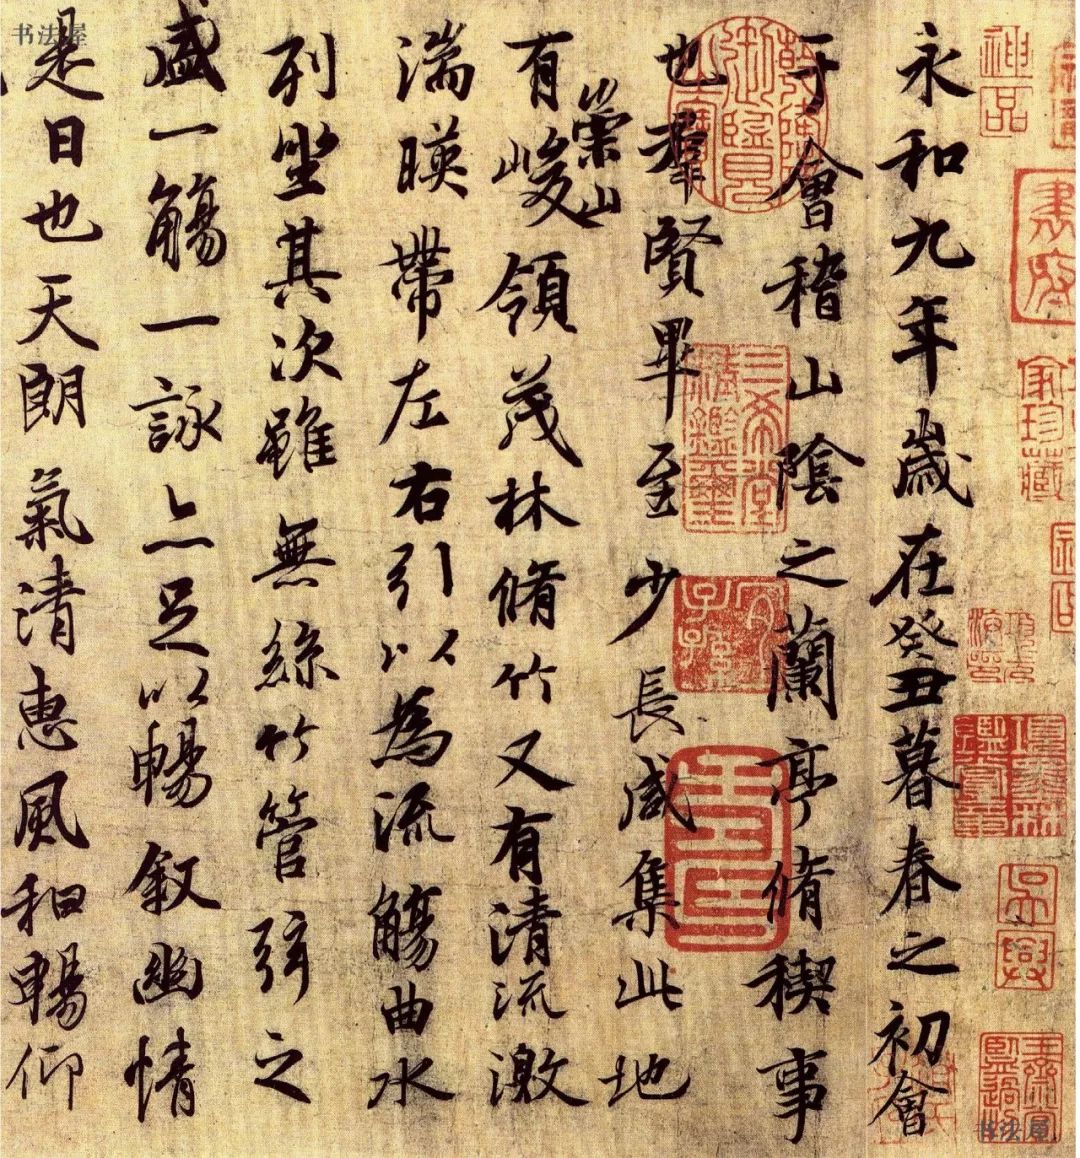 永和九年歲在癸丑暮春之初會
于會稽山陰之蘭亭脩稧事
也群賢畢至少長咸集此地
有峻領茂林脩竹又有清流激
崇山
湍暎帶左右引以為流觴曲水
列坐其次雖無絲竹管弦之
盛一觴一詠亦足以暢敘幽情
是日也天朗氣清惠風和暢仰
神品
家珍藏
三希堂精鑑璽
宜子孫
吳興
书法屋
书法屋